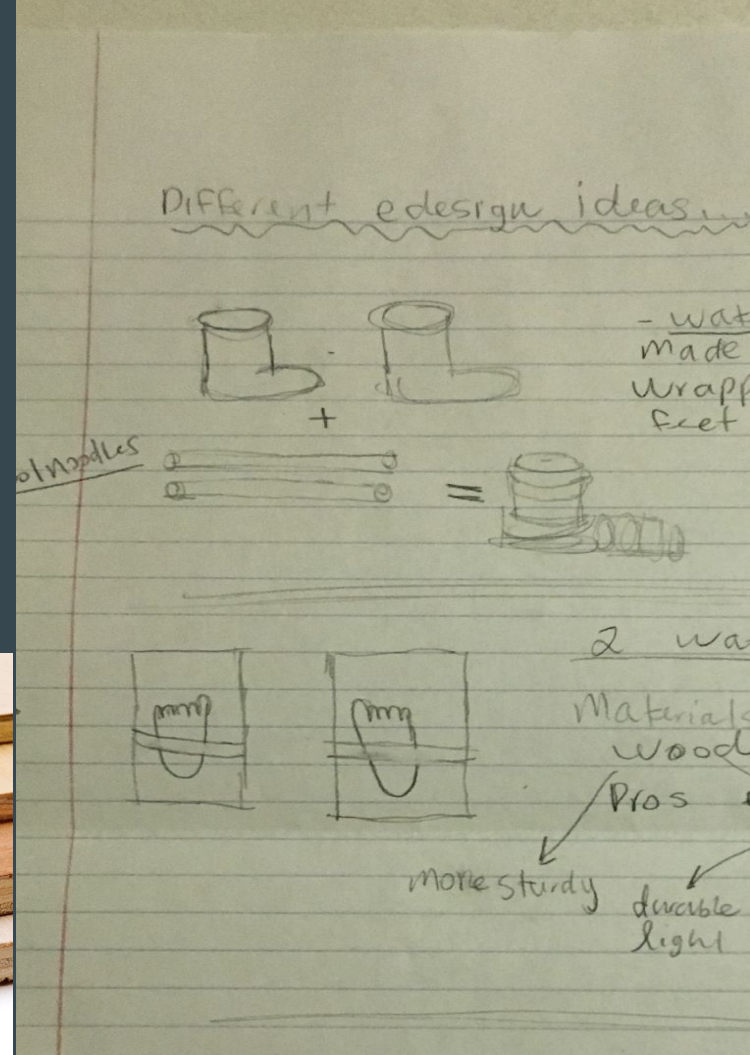 Different edesign ideas....
- wat
made
wrapp
feet
olnoodles
+
=
2 wa
Materials
wood
Pros
more sturdy
durable
light